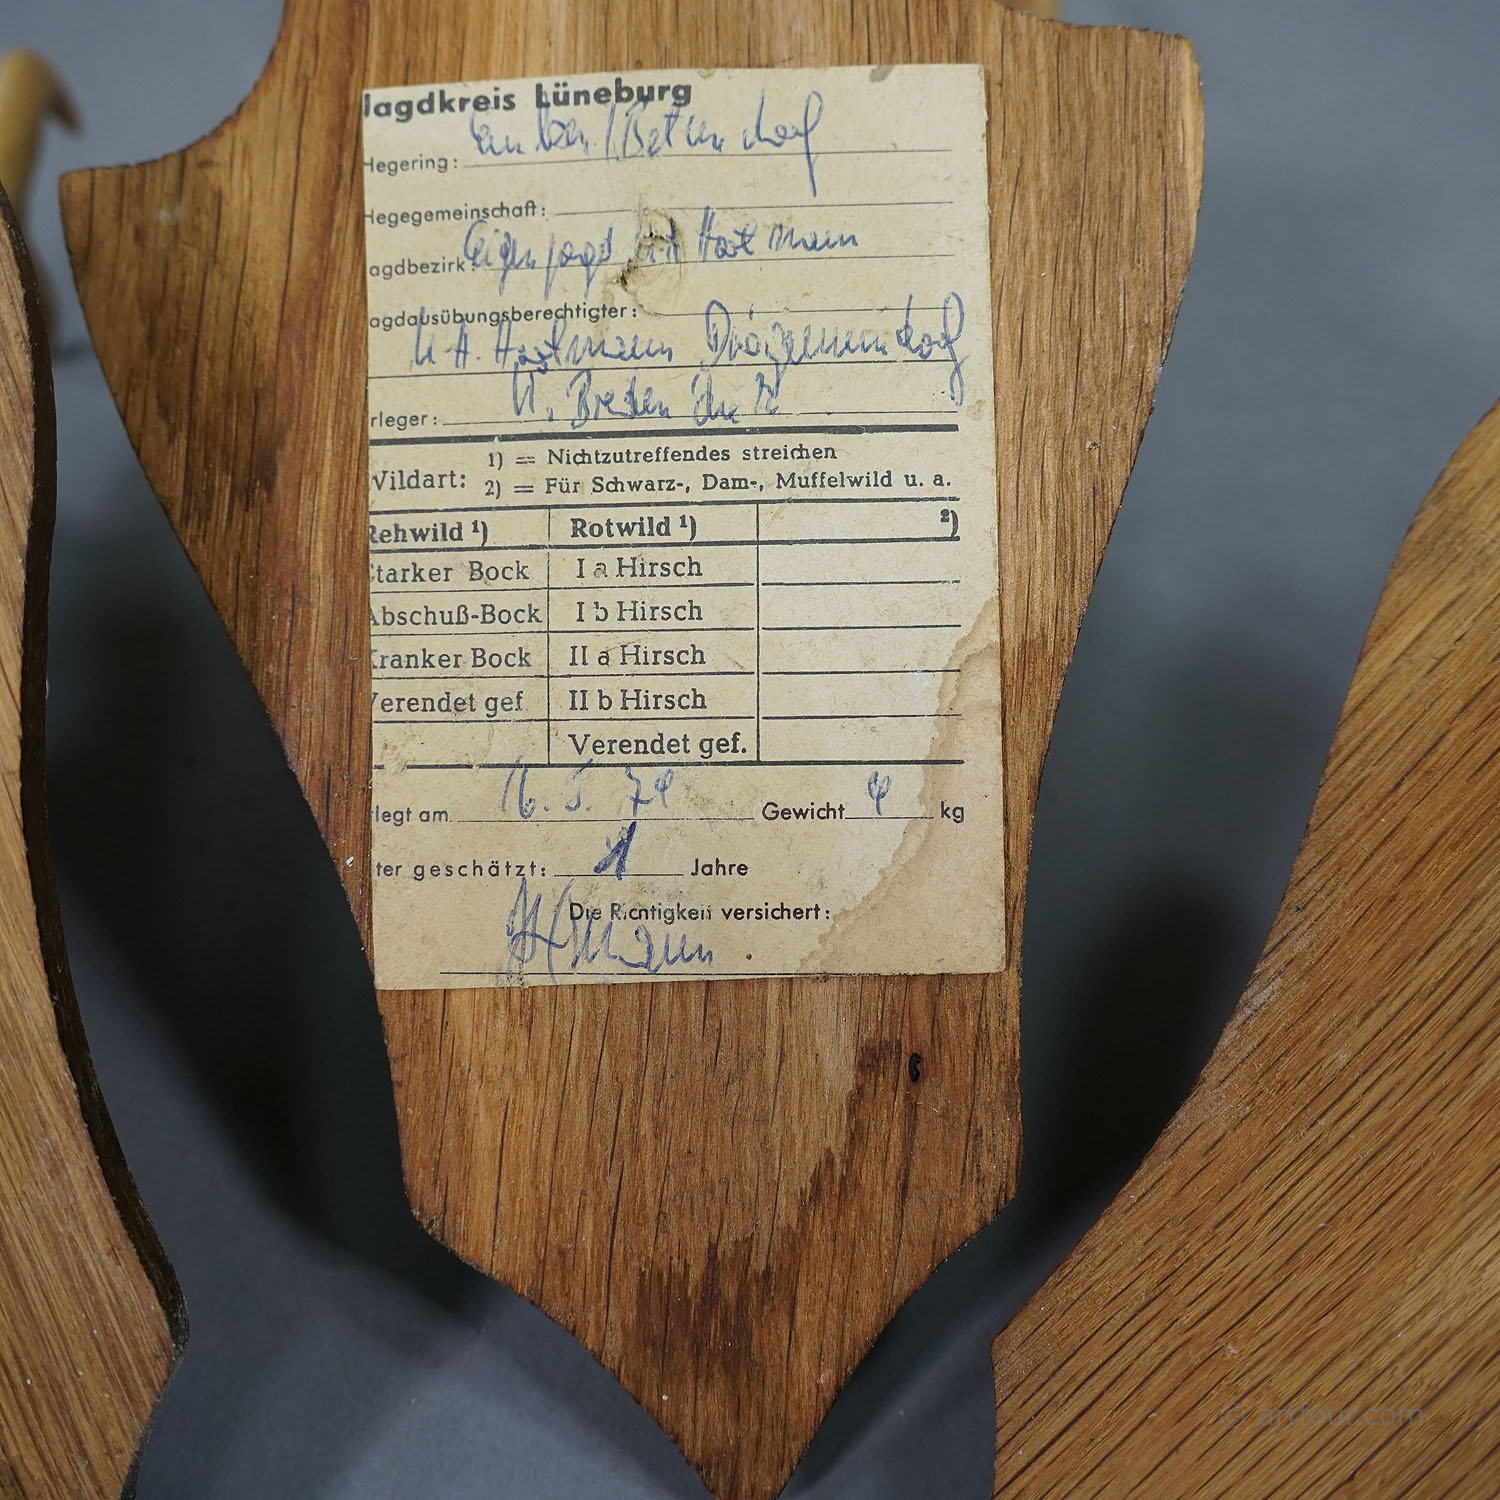 Jagdkreis Lüneburg
Hegering: / Betzendorf
Hegegemeinschaft:
agdbezirk: Eigenjagd Hartmann
agdausübungsberechtigter:
H. Hartmann Drögennindorf
rleger:
Wildart: 1) = Nichtzutreffendes streichen
2) = Für Schwarz-, Dam-, Muffelwild u. a.
Rehwild ¹) Rotwild ¹) ²)
Starker Bock I a Hirsch
Abschuß-Bock I b Hirsch
Kranker Bock II a Hirsch
Verendet gef. II b Hirsch
Verendet gef.
rlegt am 16. 5. 74 Gewicht kg
ter geschätzt: 1 Jahre
Die Richtigkeit versichert:
Hartmann
© artfour.com